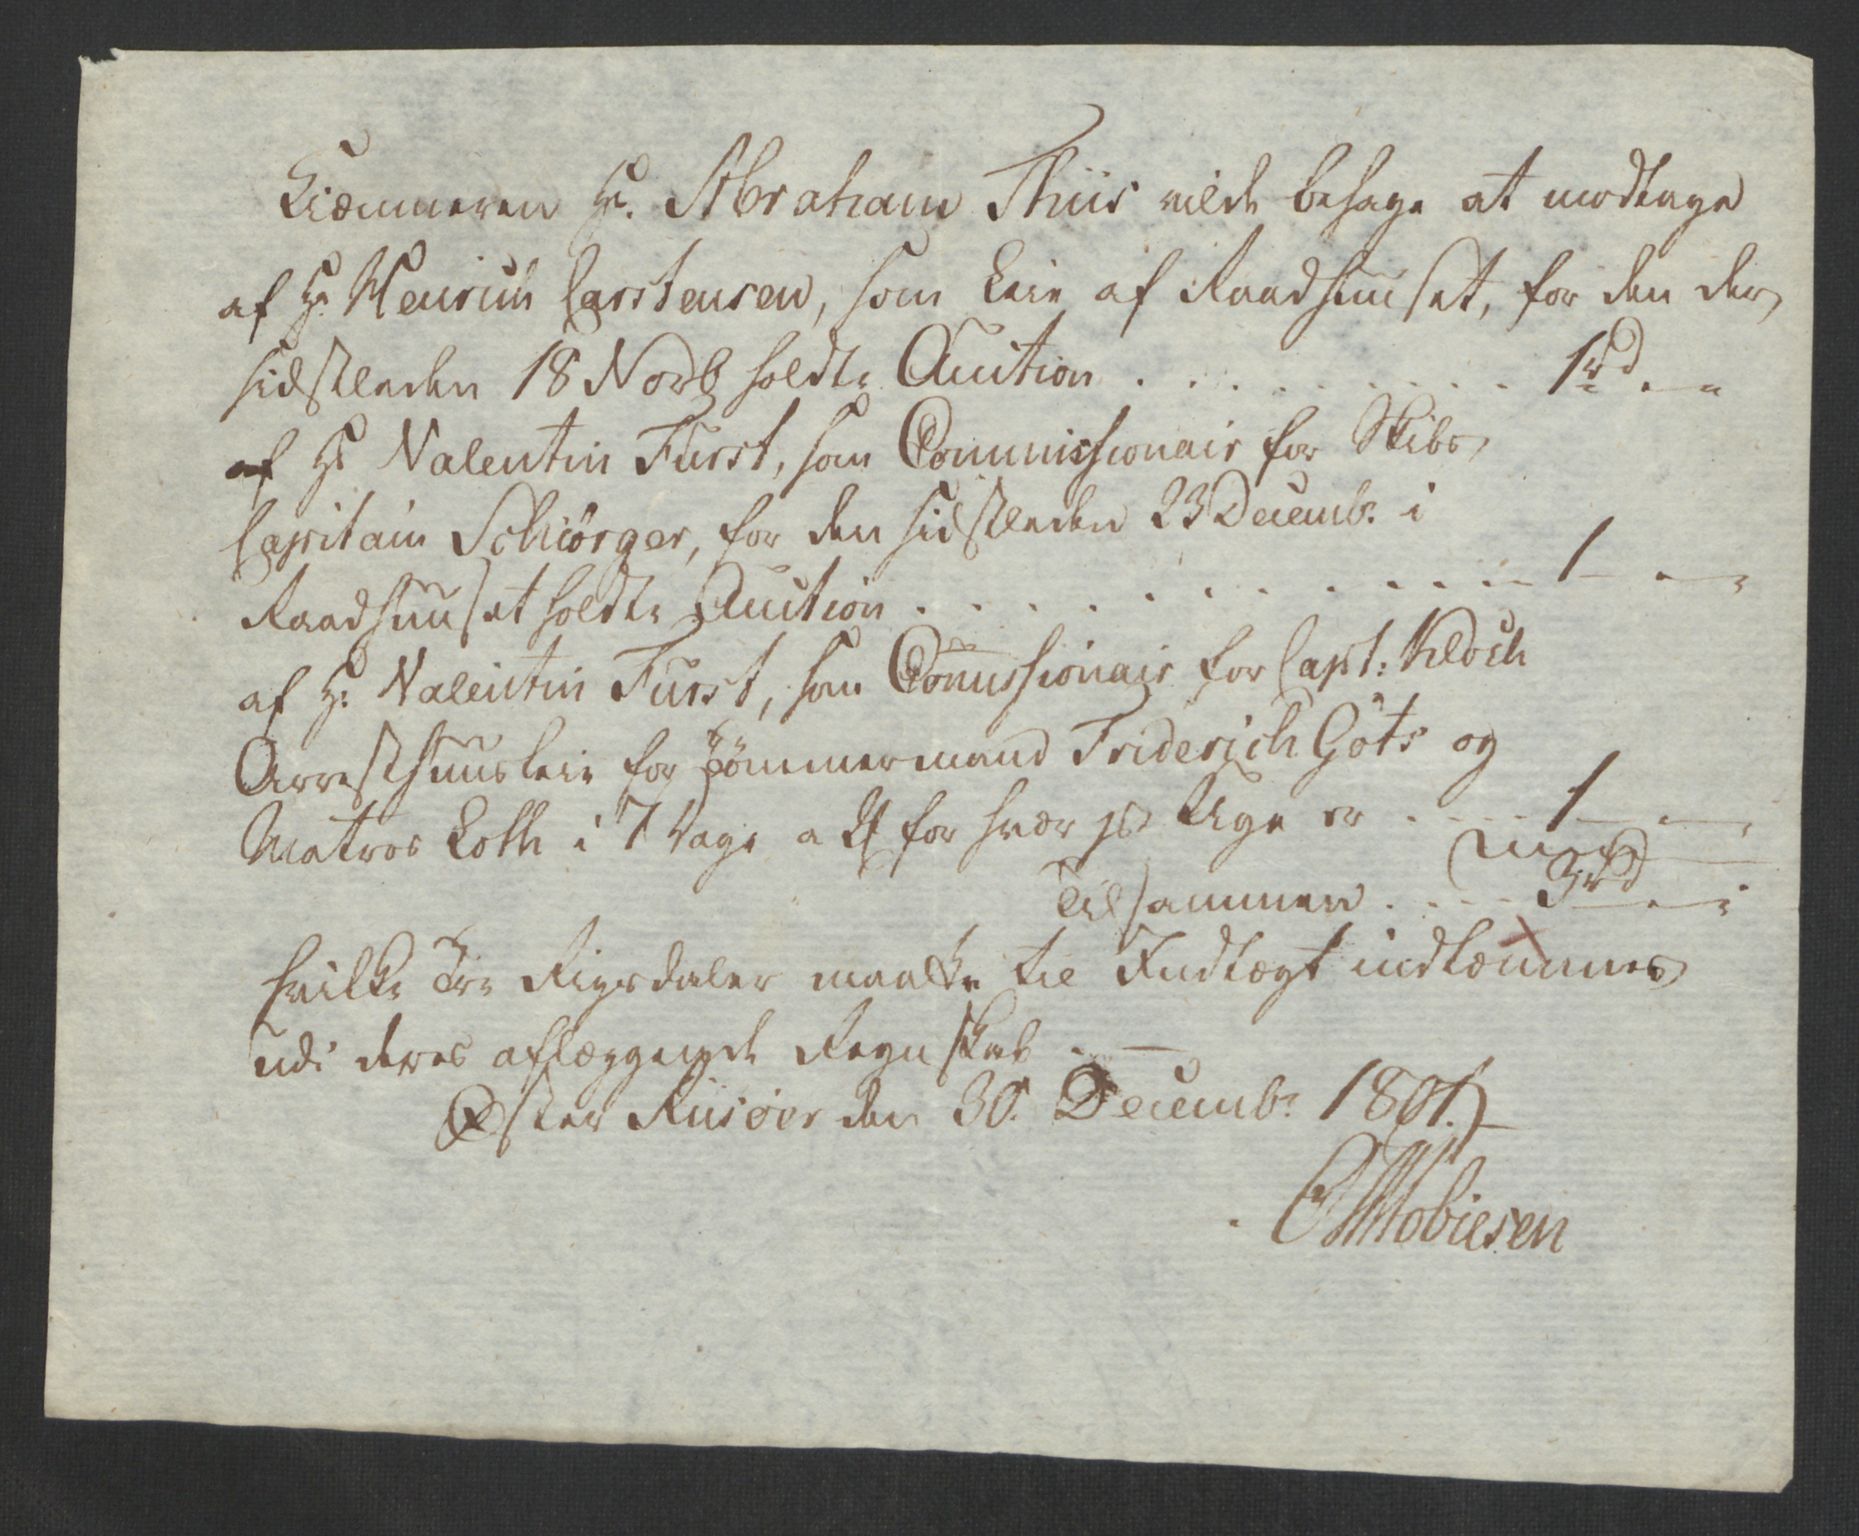 Kiæmneren Hr. Abraham Thiis vilde behage at modtage
af Hr. Henrich Carstensen, som Leie af Raadhuuset, for den der
sidstleden 18 Novb holdte Auction . . . . . . . . 1 rd „ — „
af Hr Valentin Fürst, som Commissionair for Skibs
Capitain Schiörger, for den sidstleden 23 Decembr. i
Raadhuuset holdte Auction . . . . . . . . . . 1 — „ — „
af Hr. Valentin Fürst, som Commissionair for Capt: Kloch
Arresthuusleie for Tömmermand Friderich Göts og
Matros Loth i 7 Dage a for hver pr Uge er . . . . 1 — „ — „
Tilsammen . . . . 3 rd „ — „
hvilke Tre Rigsdaler maatte til Indtægt indkommes
udi deres aflæggende Regnskab . —
Øster Riisöer den 30. Decembr 1801.
Tobiesen